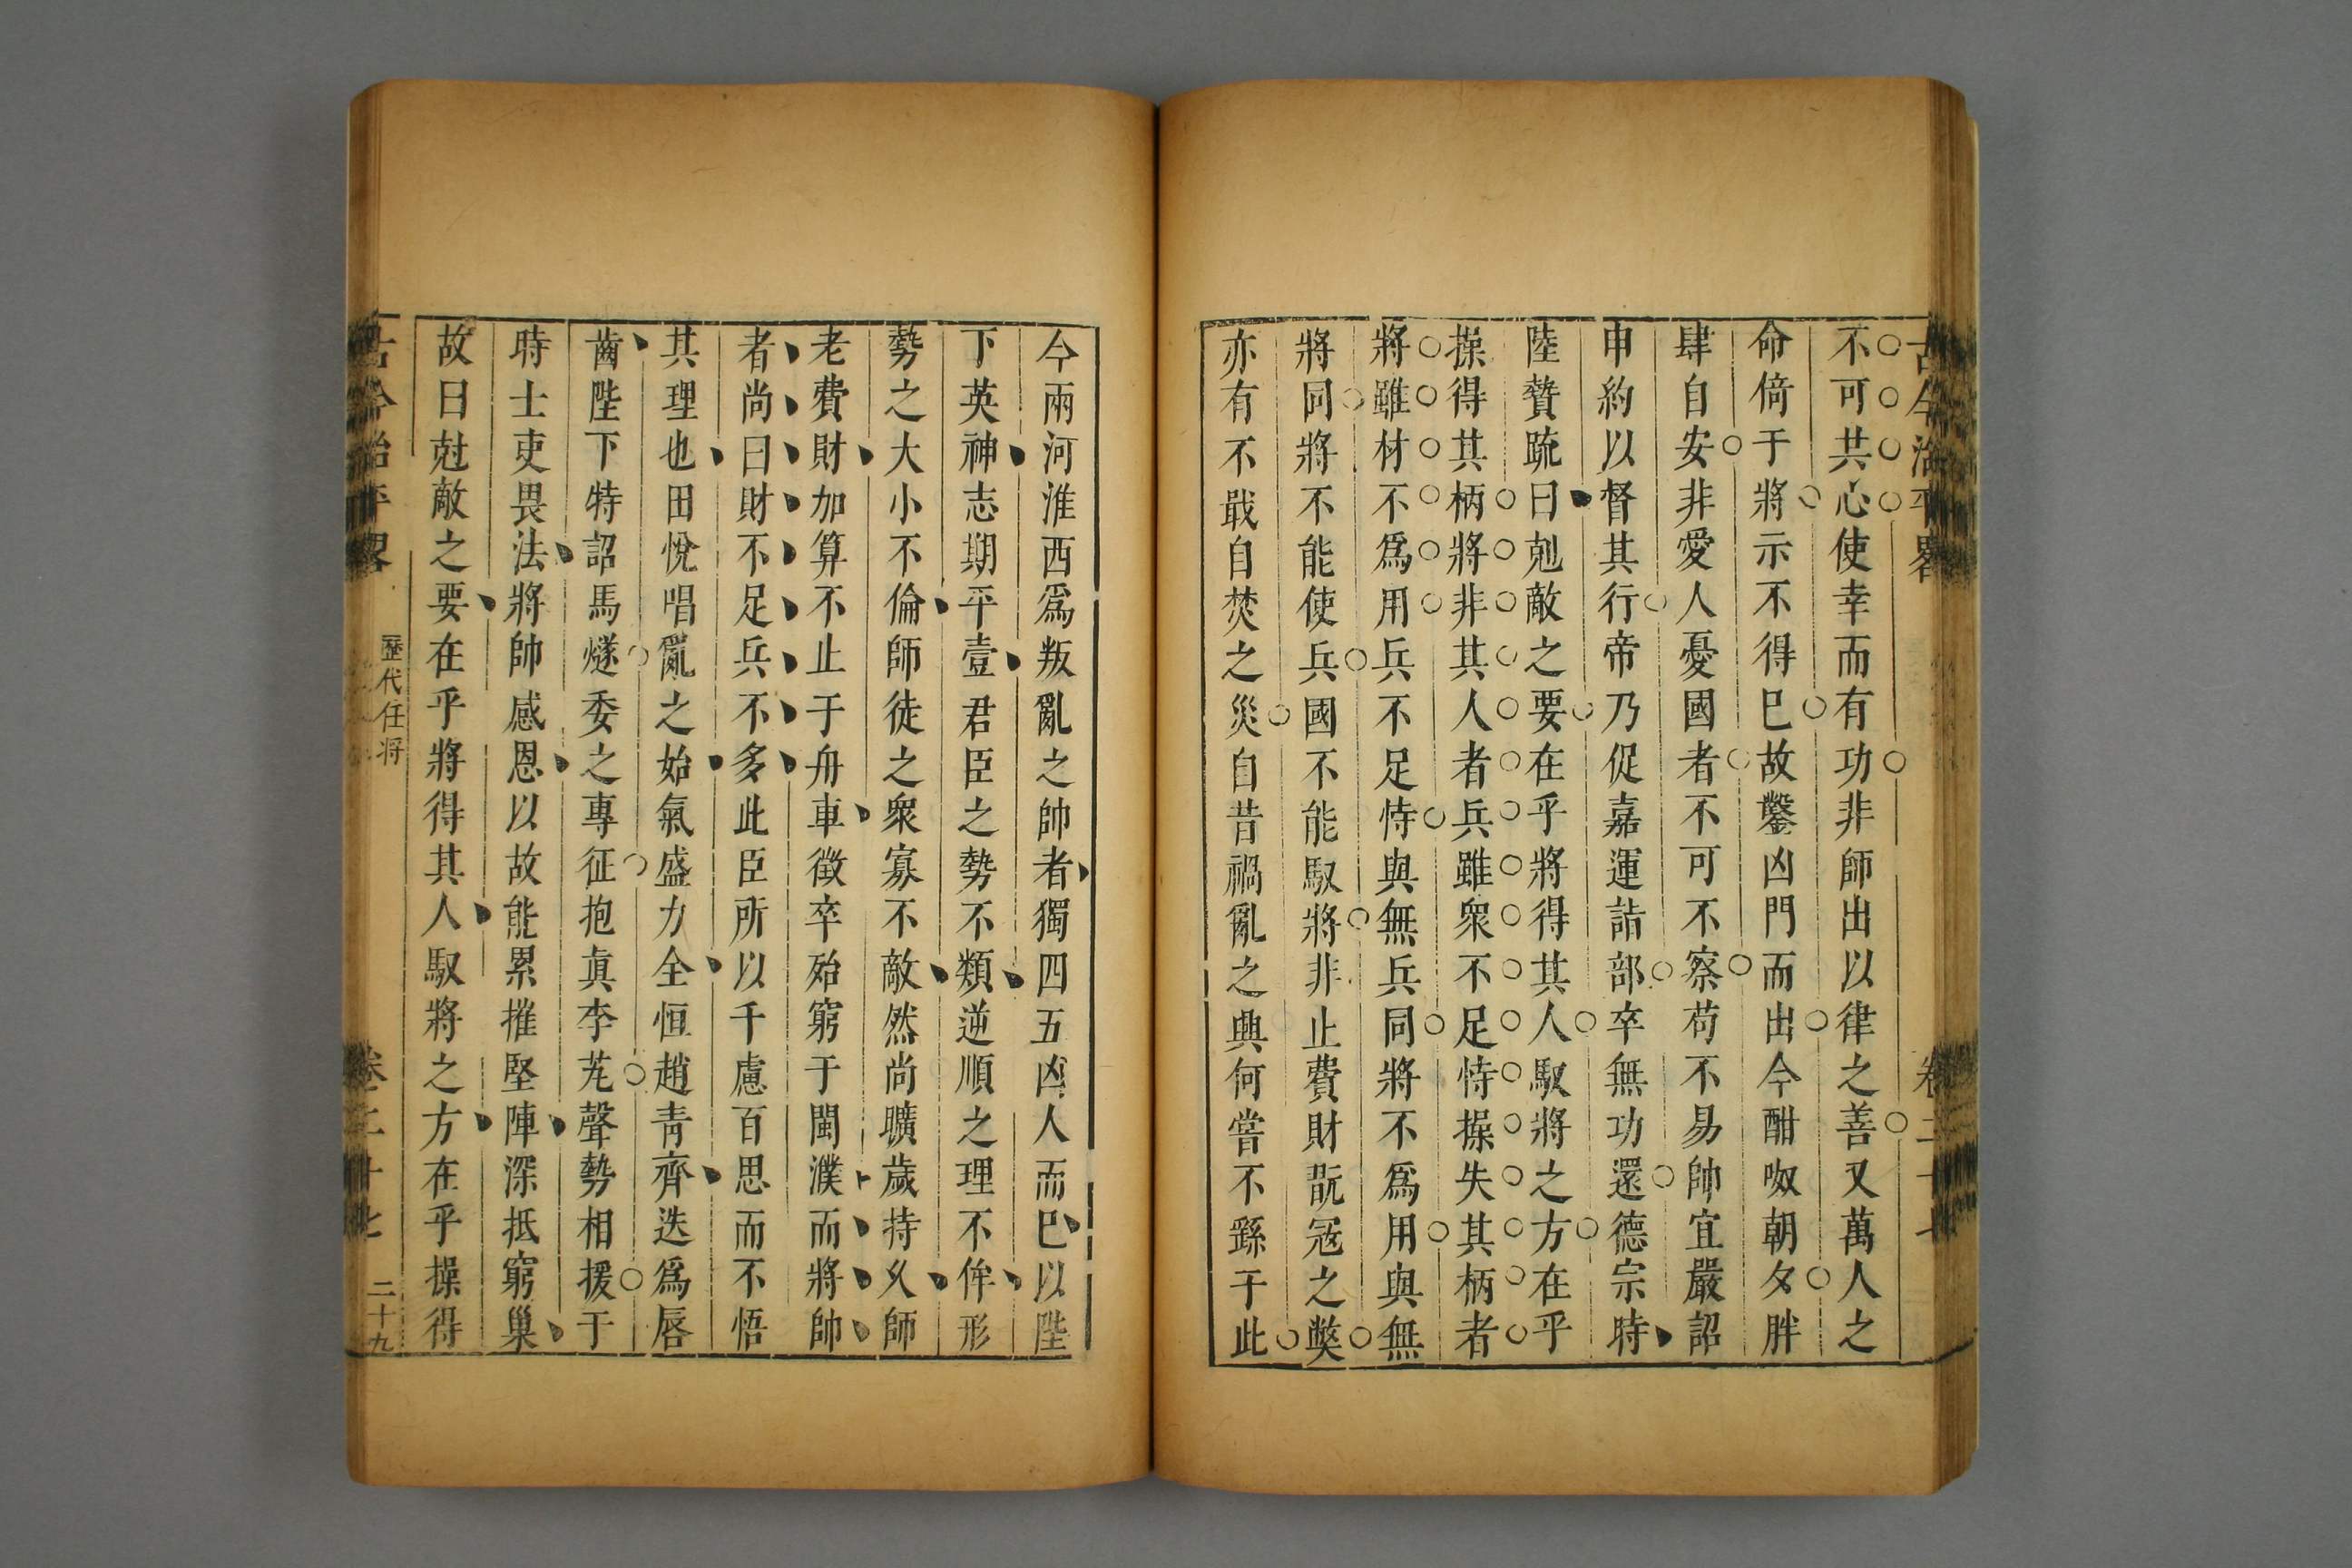 古今治平畧 卷二十七
不可共心使幸而有功非師出以律之善又萬人之
命倚于將示不得巳故鑿凶門而出今酣呶朝夕胖
肆自安非愛人憂國者不可不察苟不易帥宜嚴詔
申約以督其行帝乃促嘉運詣部卒無功還德宗時
陸贄疏曰剋敵之要在乎將得其人馭將之方在乎
操得其柄將非其人者兵雖衆不足恃操失其柄者
將雖材不爲用兵不足恃與無兵同將不爲用與無
將同將不能使兵國不能馭將非止費財翫冦之獘
亦有不戢自焚之災自昔禍亂之興何嘗不繇于此
今兩河淮西爲叛亂之帥者獨四五凶人而巳以陛
下英神志期平壹君臣之勢不類逆順之理不侔形
勢之大小不倫師徒之衆寡不敵然尚曠歲持久師
老費財加算不止于舟車徵卒殆窮于閩濮而將帥
者尚曰財不足兵不多此臣所以千慮百思而不悟
其理也田悅唱亂之始氣盛力全恒趙青齊迭爲唇
齒陛下特詔馬燧委之專征抱眞李芃聲勢相援于
時士吏畏法將帥感恩以故能累摧堅陣深抵窮巢
故曰尅敵之要在乎將得其人馭將之方在乎操得
古今治平畧 歷代任将 卷二十七 二十九